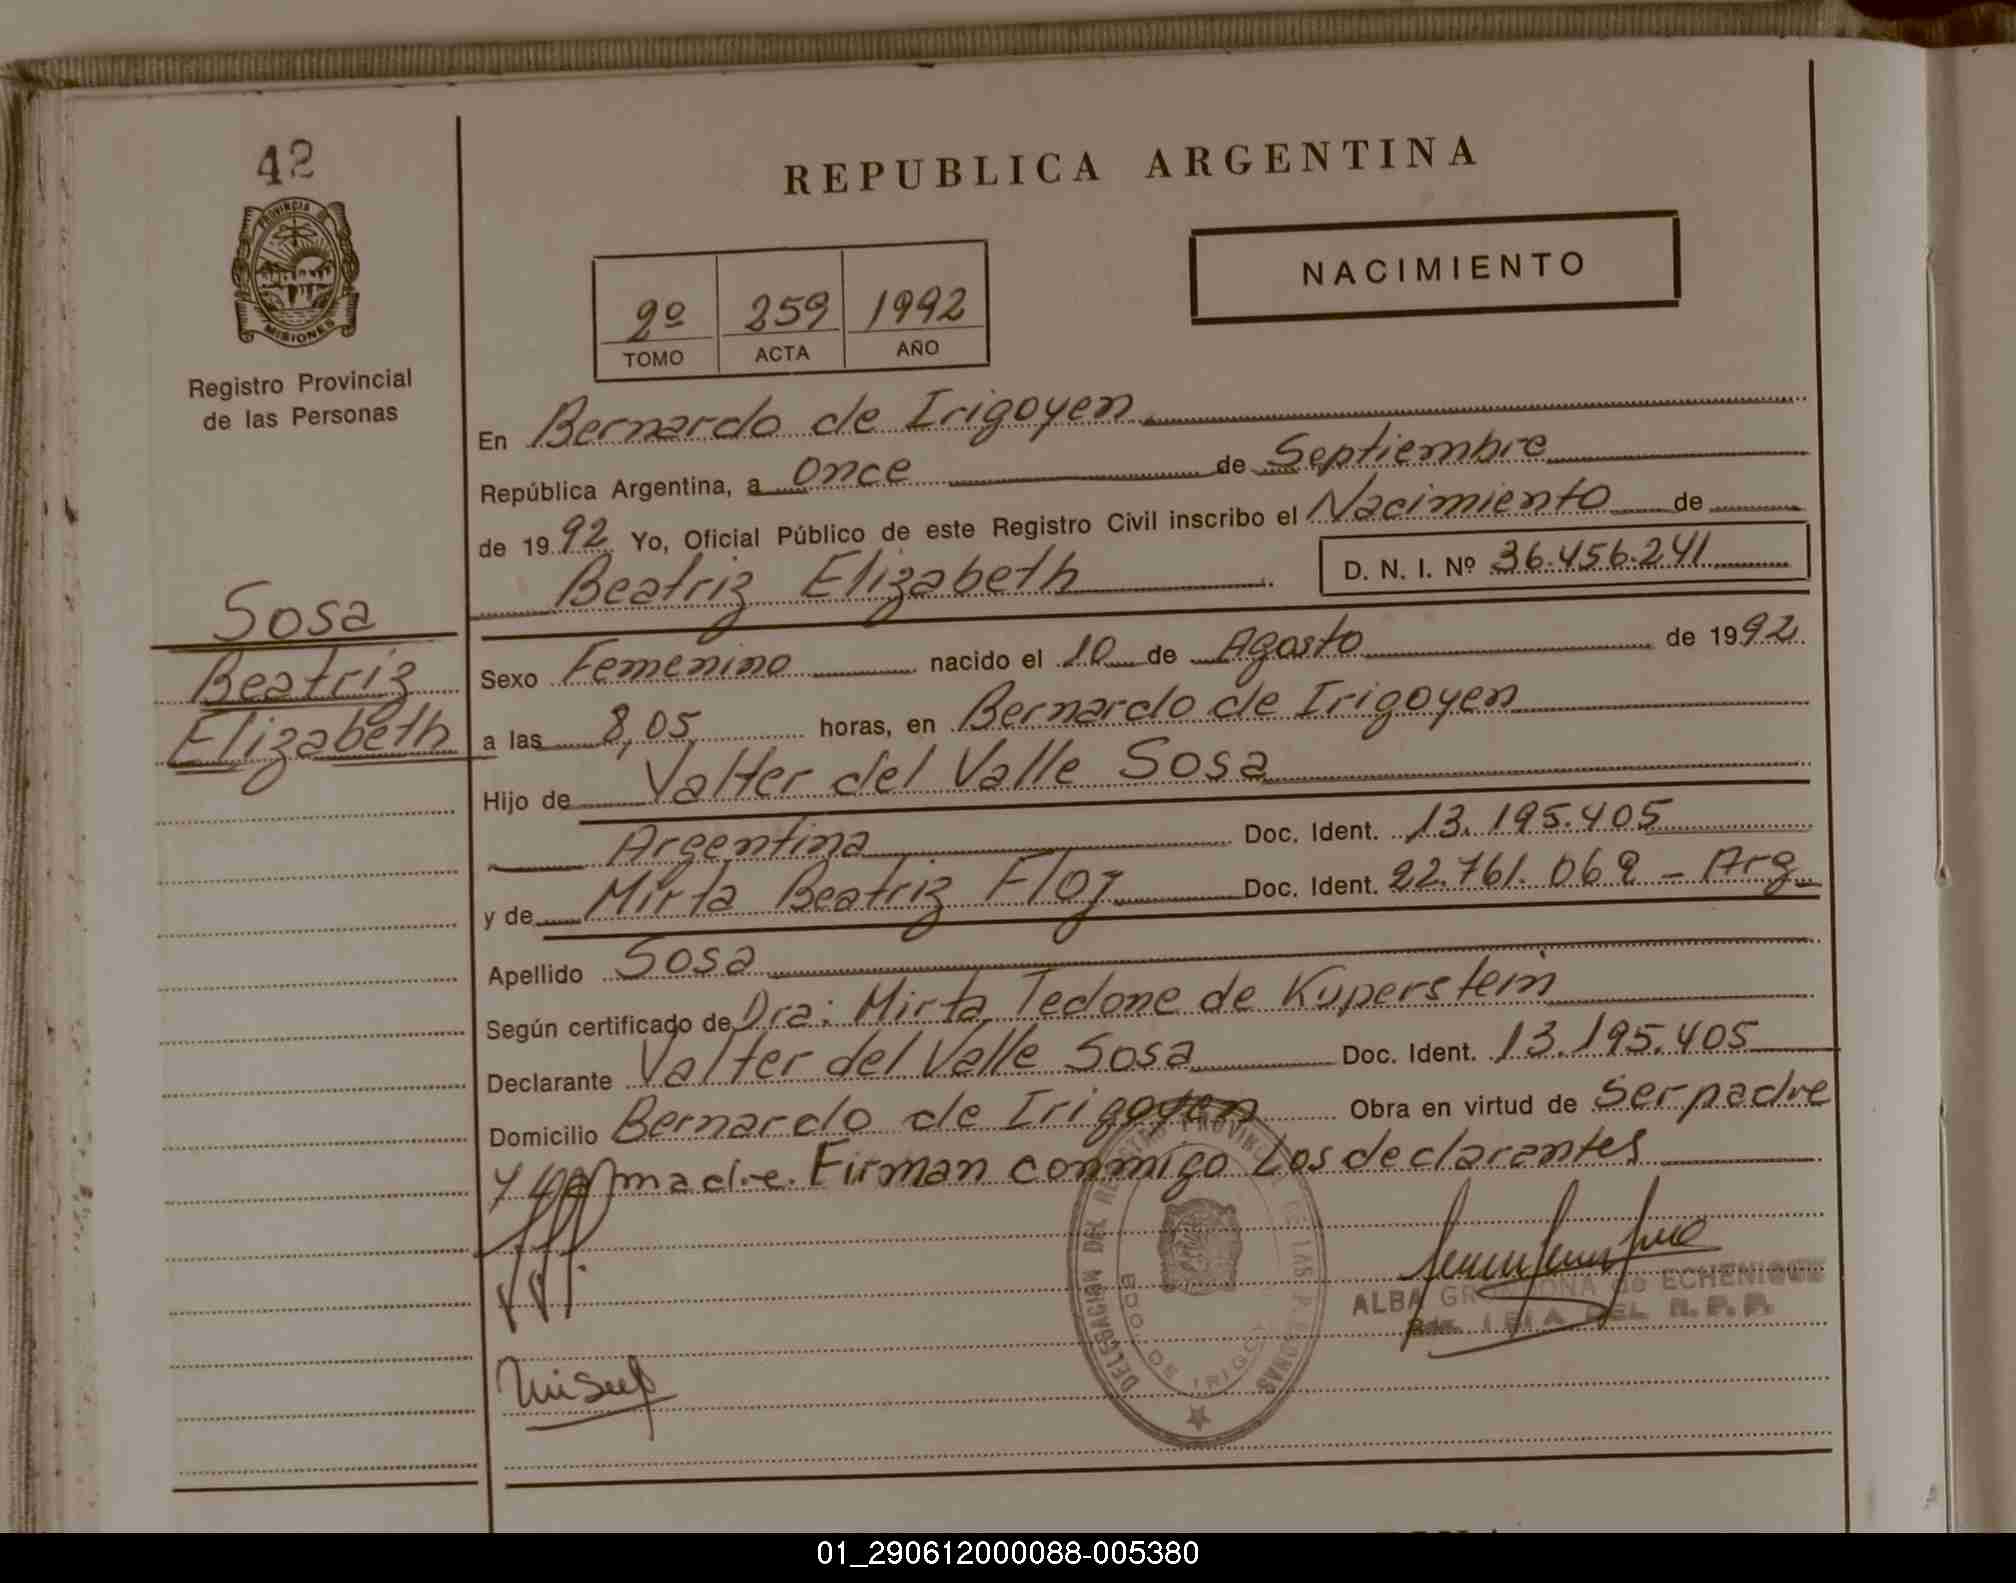 42
PROVINCIA DE
MISIONES
Registro Provincial
de las Personas
Sosa
Beatriz
Elizabeth
REPUBLICA ARGENTINA
2º 259 1992
TOMO ACTA AÑO
NACIMIENTO
En Bernardo de Irigoyen
República Argentina, a once de Septiembre
de 1992 Yo, Oficial Público de este Registro Civil inscribo el Nacimiento de
Beatriz Elizabeth D. N. I. Nº 36.456.241
Sexo Femenino nacido el 10 de Agosto de 1992
a las 8,05 horas, en Bernardo de Irigoyen
Hijo de Valter del Valle Sosa
Argentina Doc. Ident. 13.195.405
y de Mirta Beatriz Floz Doc. Ident. 22.761.062 - Arg
Apellido Sosa
Según certificado de Dra: Mirta Tedone de Kuperstein
Declarante Valter del Valle Sosa Doc. Ident. 13.195.405
Domicilio Bernardo de Irigoyen Obra en virtud de Ser padre
y la madre. Firman conmigo Los declarantes
DELEGACION DEL REGISTRO PROVINCIAL DE LAS PERSONAS
BDO. DE IRIGOY
ALBA de ECHENIQUE
DEL R. P. P.
01_290612000088-005380